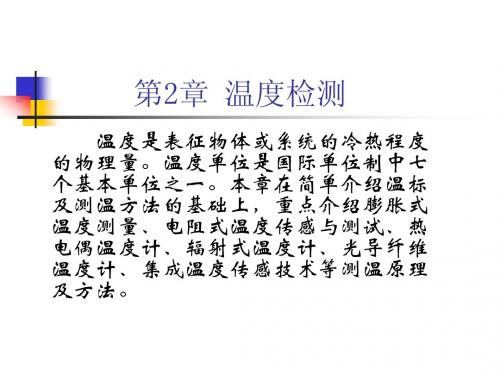 第2章 温度检测
温度是表征物体或系统的冷热程度
的物理量。温度单位是国际单位制中七
个基本单位之一。本章在简单介绍温标
及测温方法的基础上，重点介绍膨胀式
温度测量、电阻式温度传感与测试、热
电偶温度计、辐射式温度计、光导纤维
温度计、集成温度传感技术等测温原理
及方法。